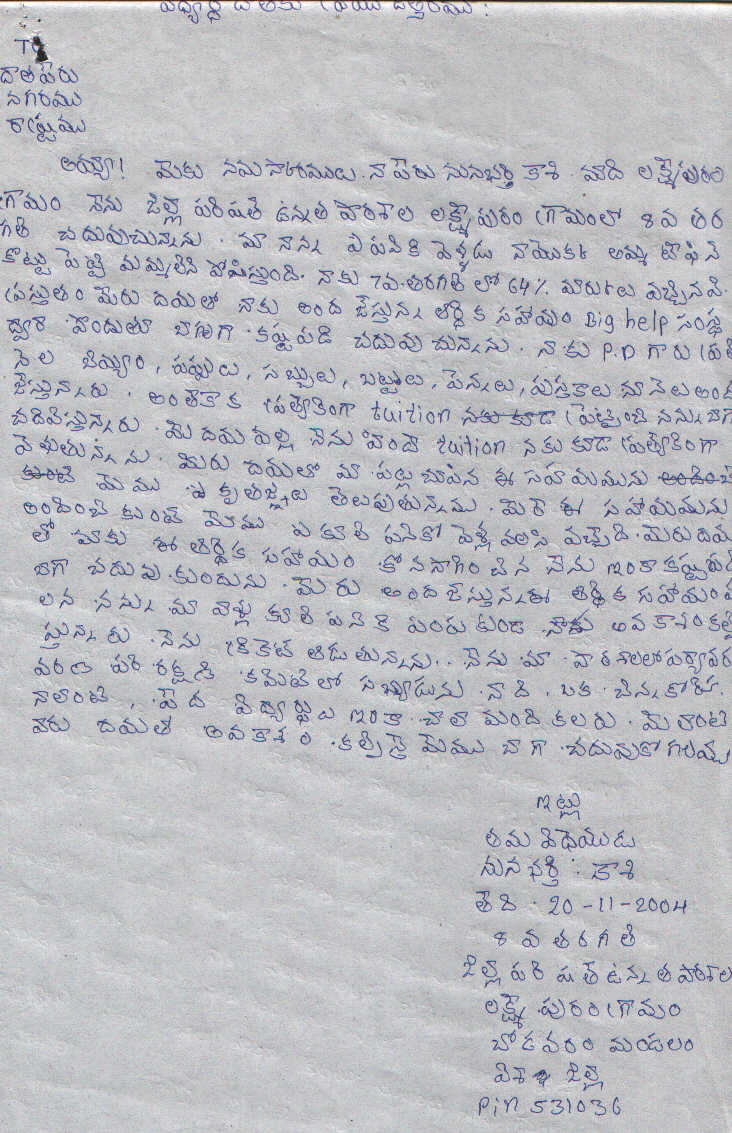 విద్యార్థి దాతకు వ్రాయు ఉత్తరము:
To
దాత పేరు
నగరము
రాష్ట్రము
అయ్యా! మీకు నమస్కారములు. నా పేరు సునభర్తి కాశి. మాది లక్ష్మీపురం
గ్రామం నేను జిల్లా పరిషత్ ఉన్నత పాఠశాల లక్ష్మీపురం గ్రామంలో 8 వ తర
గతి చదువుచున్నాను. మా నాన్న ఏ పనికి వెళ్ళడు నాయొక్క అమ్మ టిఫిన్
కొట్టు పెట్టి మమ్మల్ని పోషిస్తుంది. నాకు 7వ.తరగతి లో 64% మార్కులు వచ్చినవి.
ప్రస్తుతం మీరు దయతో నాకు అంద జేస్తున్న ఆర్థిక సహాయం Big help సంస్థ
ద్వారా పొందుతూ బాగుగా కష్టపడి చదువు చున్నాను. నాకు P.D గారు ప్రతి
నెల బియ్యం, పప్పులు, సబ్బులు, బట్టలు, పెన్నులు, పుస్తకాలు మానెల అంద
జేస్తున్నారు. అంతేకాక ప్రత్యేకంగా tuition నకు కూడా పెట్టించి నన్ను బాగా
చదివిస్తున్నారు. మీ దయ వల్ల నేను హిందీ tuition నకు కూడా ప్రత్యేకంగా
వెళుతున్నాను. మీరు దయతో మా పట్ల చూపిన ఈ సహాయమును అందించ
కుంటే మేము ఏ కృతజ్ఞతలు తెలుపుతున్నాము. మీరే ఈ సహాయమును
అందించ కుంటే మేము ఏ కూలి పనికో వెళ్ళ వలసి వచ్చేది. మీరు దయ
తో మాకు ఈ ఆర్థిక సహాయం కొనసాగించిన నేను ఇంకా కష్టపడి
బాగా చదువు.కుందును. మీరు అందజేస్తున్న ఈ ఆర్థిక సహాయం వ
లన నన్ను మా వాళ్లు కూలి పనికి పంపకుండ నాకు అవకాశం కల్పి
స్తున్నారు. నేను క్రికెట్ ఆడుతున్నాను.. నేను మా పాఠశాలలో పర్యావర
వరణ పరి రక్షణ కమిటీలో సభ్యుడును. నాది. ఒక చిన్న కోరిక.
నాలాంటి, పేద విద్యార్థులు ఇంకా చాలా మంది కలరు. మీలాంటి
వారు దయతో అవకాశం కల్పిస్తే మేము బాగా చదువుకోగలమ్మ
ఇట్లు
తమ విధేయుడు
సునభర్తి: కాశి
తేది. 20-11-2004
8 వ తరగతి
జిల్లా పరిషత్ ఉన్నత పాఠశాల
లక్ష్మీ.పురం గ్రామం
చోడవరం మండలం
విశాఖ జిల్లా
Pin 531036